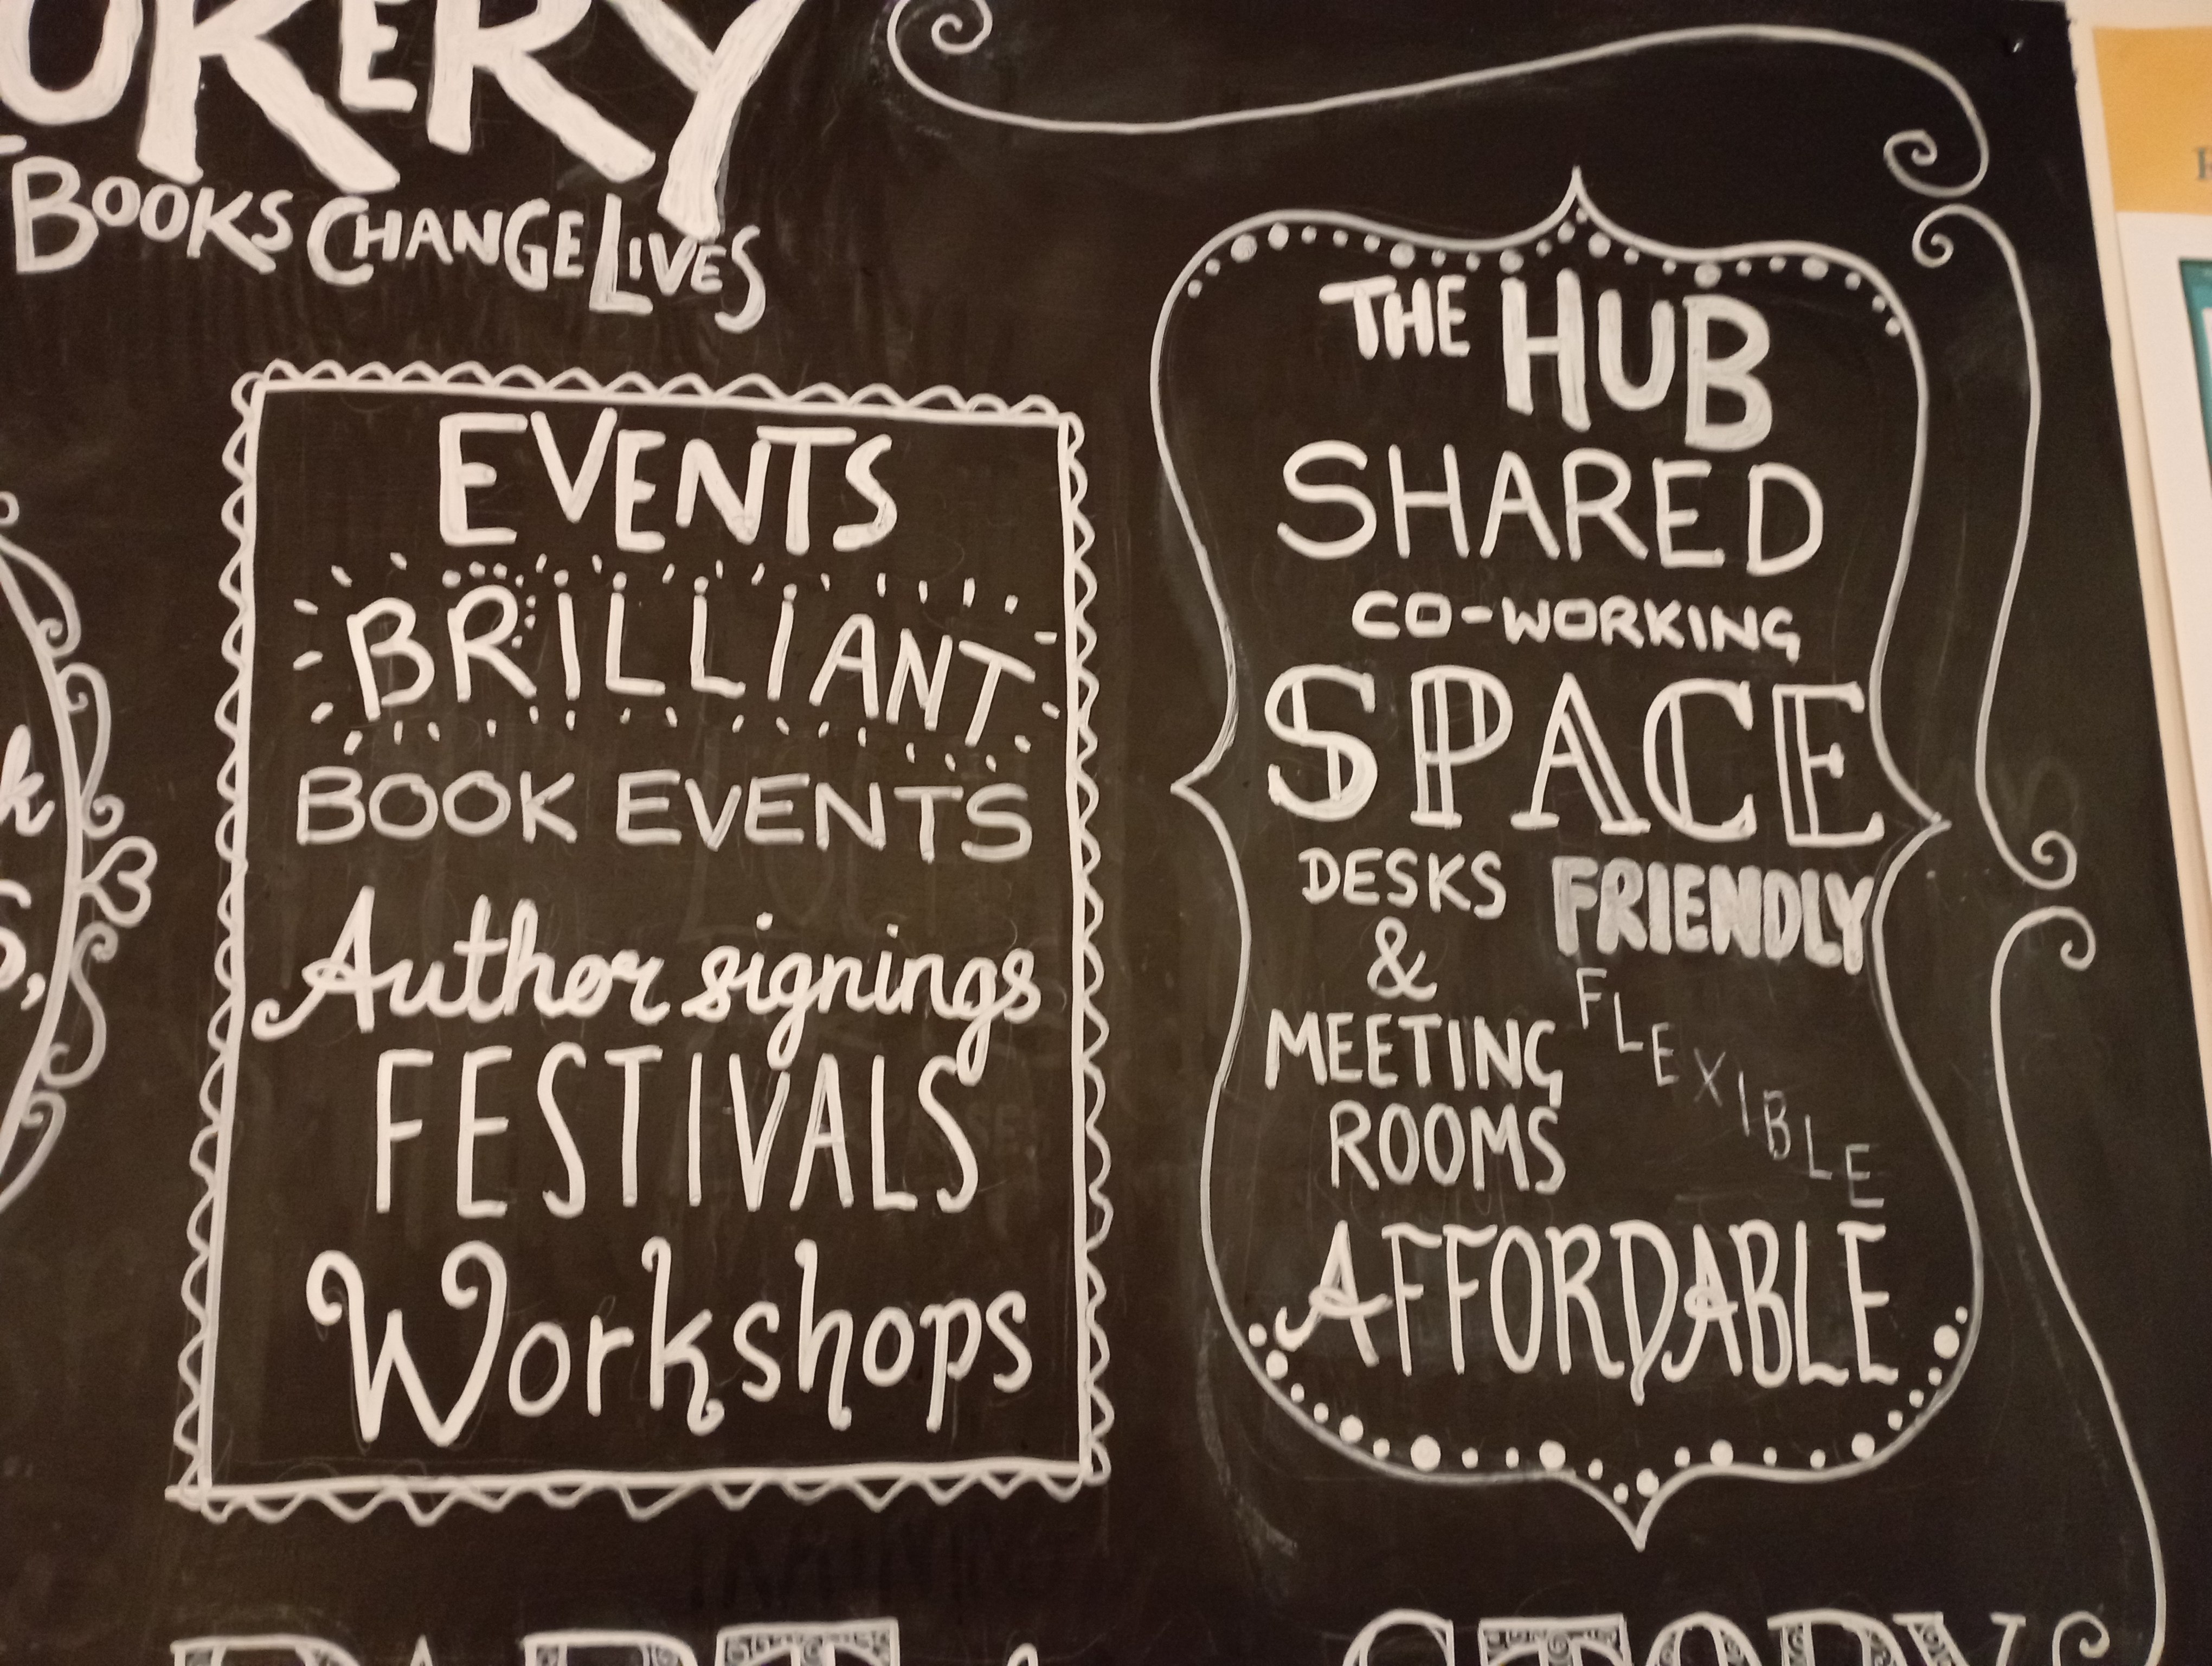 BOOKS CHANGE LIVES
EVENTS
BRILLIANT
BOOK EVENTS
Author signings
FESTIVALS
Workshops
THE HUB
SHARED
CO-WORKING
SPACE
DESKS
&
MEETING
ROOMS
FRIENDLY
FLEXIBLE
AFFORDABLE
STORY